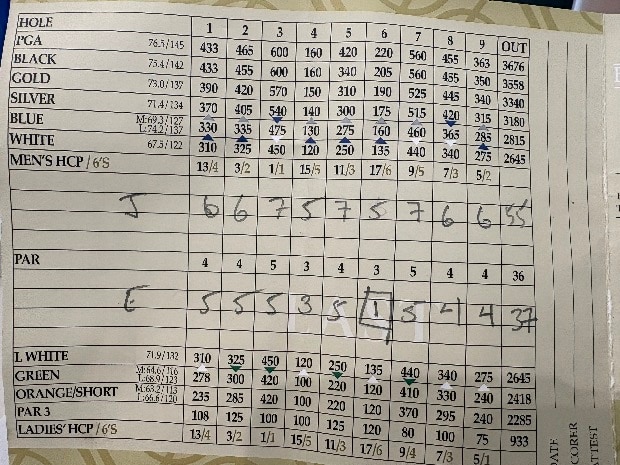 HOLE 1 2 3 4 5 6 7 8 9 OUT
PGA 76.5/145 433 465 600 160 420 220 560 455 363 3676
BLACK 75.4/142 433 455 600 160 340 205 560 455 350 3558
GOLD 73.0/137 390 420 570 150 310 190 525 445 340 3340
SILVER 71.4/134 370 405 540 140 300 175 515 420 315 3180
BLUE M:69.3/127 L:74.2/137 330 335 475 130 275 160 460 365 285 2815
WHITE 67.5/122 310 325 450 120 250 135 440 340 275 2645
MEN'S HCP/6'S 13/4 3/2 1/1 15/5 11/3 17/6 9/5 7/3 5/2
J 6 6 7 5 7 5 7 6 6 55
PAR 4 4 5 3 4 3 5 4 4 36
E 5 5 5 3 5 1 5 4 4 37
L WHITE 71.9/132 310 325 450 120 250 135 440 340 275 2645
GREEN M:64.6/116 L:68.9/123 278 300 420 100 220 120 410 330 240 2418
ORANGE/SHORT M:63.2/115 L:66.6/120 235 285 420 100 220 120 370 295 240 2285
PAR 3 108 125 100 100 125 120 80 100 75 933
LADIES' HCP/6'S 13/4 3/2 1/1 15/5 11/3 17/6 9/4 7/3 5/1
ATE
CORER
TTEST